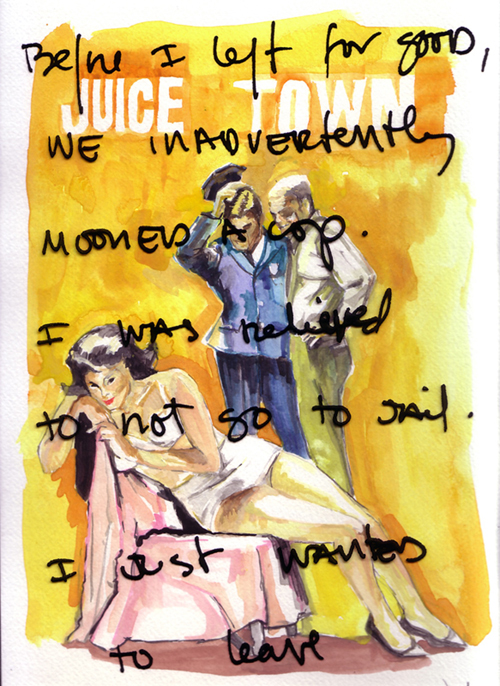 Before I left for good,
JUICE TOWN
WE INADVERTENTLY
MOONED A cop.
I WAS relieved
to not go to jail.
I JUST WANTED
to leave